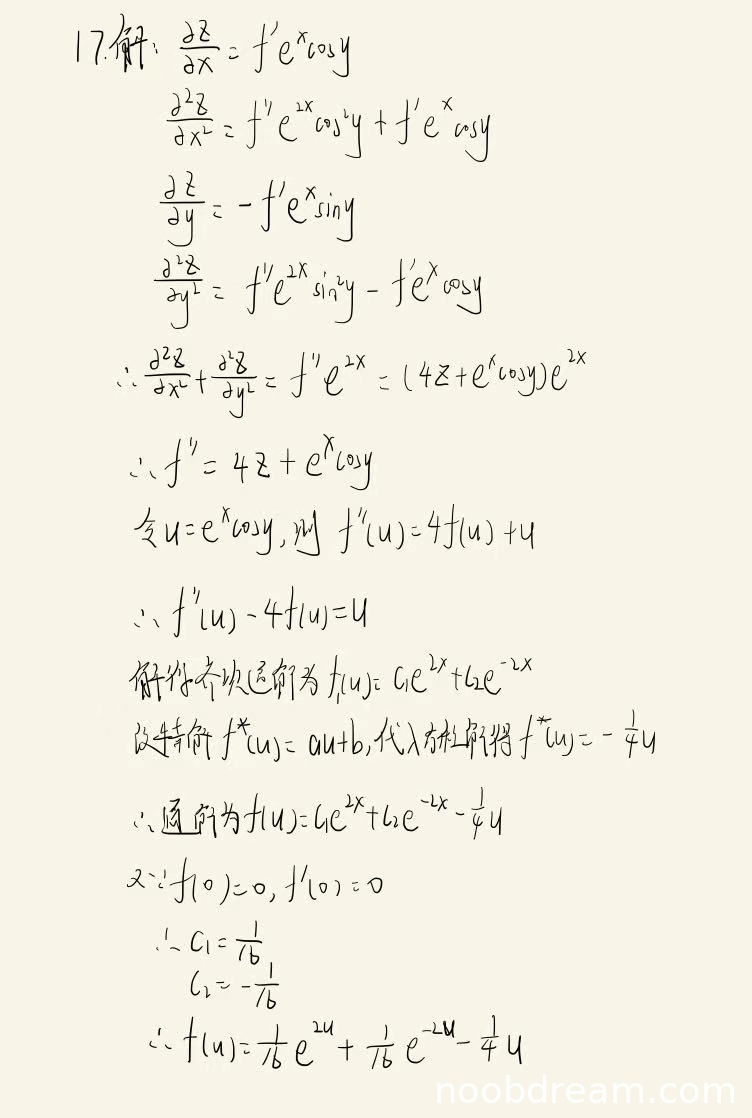 17.解: ∂z/∂x = f'e^x cosy
∂²z/∂x² = f''e^{2x}cos²y + f'e^x cosy
∂z/∂y = -f'e^x siny
∂²z/∂y² = f''e^{2x}sin²y - f'e^x cosy
∴ ∂²z/∂x² + ∂²z/∂y² = f''e^{2x} = (4z+e^x cosy)e^{2x}
∴ f'' = 4z + e^x cosy
令u=e^x cosy, 则 f''(u)=4f(u)+u
∴ f''(u)-4f(u)=u
解得齐次通解为 f₁(u)= C₁e^{2x}+C₂e^{-2x}
设特解 f*(u)= au+b, 代入方程解得 f*(u)= -1/4 u
∴通解为f(u)=C₁e^{2x}+C₂e^{-2x}-1/4 u
又∵f(0)=0, f'(0)=0
∴ C₁=1/16
C₂=-1/16
∴ f(u)=1/16 e^{2u}+1/16 e^{-2u}-1/4 u
noobdream.com